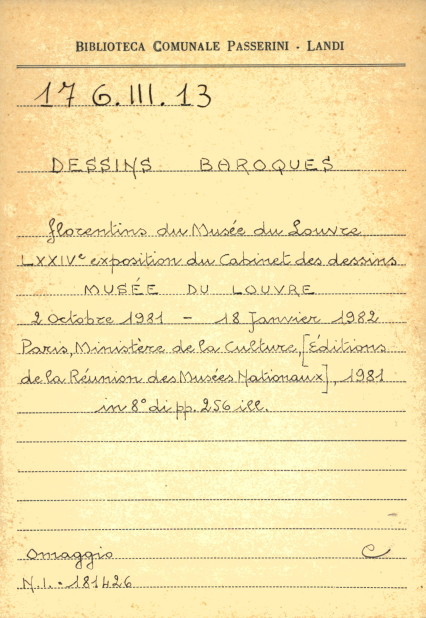 BIBLIOTECA COMUNALE PASSERINI - LANDI
17 6.III.13
DESSINS BAROQUES
florentins du Musée du Louvre
LXXIVe exposition du Cabinet des dessins
MUSÉE DU LOUVRE
2 Octobre 1981 - 18 Janvier 1982
Paris, Ministère de la Culture, [Éditions
de la Réunion des Musées Nationaux], 1981
in 8° di pp. 256 ill.
Omaggio C
N.I. - 181426